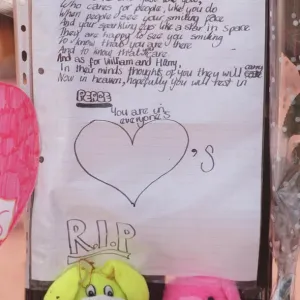 Who cares for people, like you do
When people see your smiling face
And your sparkling lips like a star in space
They are happy to see you smiling
To know that you are there
And to know that care
And as for William and Harry,
In their minds thoughts of you they will carry
Now in heaven, hopefully you will rest in
PEACE
You are in
everyone's
's
R.I.P